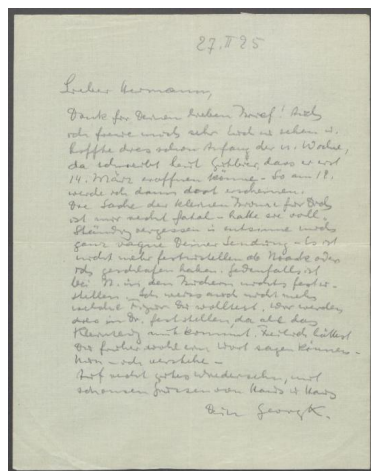 27.II 25
Lieber Hermann,
Dank für Deinen lieben Brief! Auch
ich freue mich sehr Euch zu sehen u.
hoffte dass schon Anfang der n. Woche,
da schreibt heut, dass er erst
14. März eröffnen könne. So am 19.
werde ich dann dort erscheinen.
Die Sache der kleinen Bronze für Dich
ist mir recht fatal - hatte sie voll-
ständig vergessen u. entsinne mich
ganz vague Deiner Sendung - Es ist
nicht mehr festzustellen ob Noack oder
ich geschlafen haben. Jedenfalls ist
bei N. in den Büchern nichts festzu-
stellen. Ich weiss auch nicht mehr
welche Figur Du wolltest. Wir werden
also in Dr. feststellen, da all das
Kleinzeug mit kommt. Freilich hättest
Du früher wohl ein Wort sagen können -
- ich verstehe -
Auf recht gutes Wiedersehn, mit
schönsten Grüssen von Haus zu Haus
Dein Georg K.